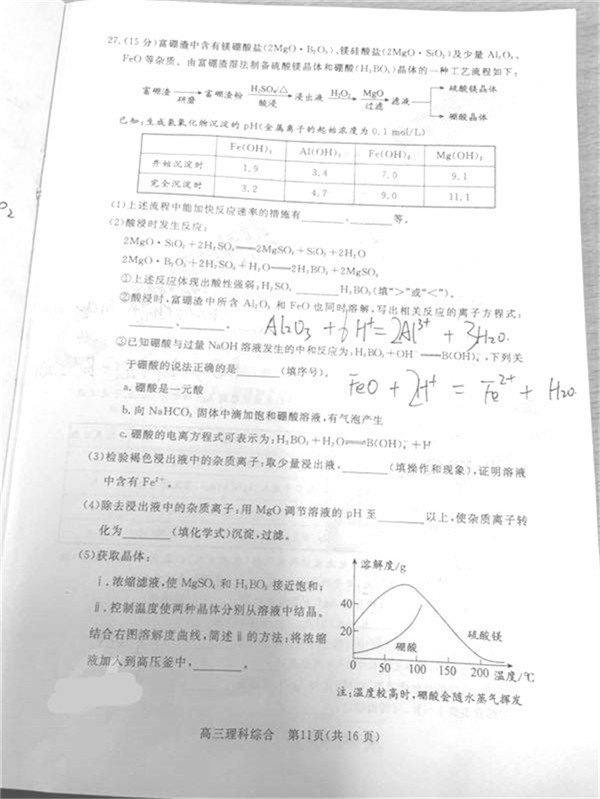 27.(15 分)富硼渣中含有镁硼酸盐(2MgO·B₂O₃)、镁硅酸盐(2MgO·SiO₂)及少量 Al₂O₃、
FeO 等杂质。由富硼渣湿法制备硫酸镁晶体和硼酸(H₃BO₃)晶体的一种工艺流程如下:
富硼渣 研磨 富硼渣粉 H₂SO₄/△ 酸浸 浸出液 H₂O₂ MgO 过滤 滤液 硫酸镁晶体
硼酸晶体
已知:生成氢氧化物沉淀的 pH(金属离子的起始浓度为 0.1 mol/L)
Fe(OH)₃ Al(OH)₃ Fe(OH)₂ Mg(OH)₂
开始沉淀时 1.9 3.4 7.0 9.1
完全沉淀时 3.2 4.7 9.0 11.1
(1)上述流程中能加快反应速率的措施有______、______等。
(2)酸浸时发生反应:
2MgO·SiO₂+2H₂SO₄══2MgSO₄+SiO₂+2H₂O
2MgO·B₂O₃+2H₂SO₄+H₂O══2H₃BO₃+2MgSO₄
①上述反应体现出酸性强弱:H₂SO₄______H₃BO₃(填“>”或“<”)。
②酸浸时,富硼渣中所含 Al₂O₃ 和 FeO 也同时溶解,写出相关反应的离子方程式:
______、______。 Al₂O₃ + 6H⁺=2Al³⁺ + 3H₂O.
③已知硼酸与过量 NaOH 溶液发生的中和反应为:H₃BO₃+OH⁻══B(OH)₄⁻。下列关
于硼酸的说法正确的是______(填序号)。
FeO + 2H⁺ = Fe²⁺ + H₂O.
a.硼酸是一元酸
b.向 NaHCO₃ 固体中滴加饱和硼酸溶液,有气泡产生
c.硼酸的电离方程式可表示为:H₃BO₃+H₂O⇌B(OH)₄⁻+H
(3)检验褐色浸出液中的杂质离子:取少量浸出液,______(填操作和现象),证明溶液
中含有 Fe²⁺。
(4)除去浸出液中的杂质离子:用 MgO 调节溶液的 pH 至______以上,使杂质离子转
化为______(填化学式)沉淀,过滤。
(5)获取晶体:
ⅰ.浓缩滤液,使 MgSO₄ 和 H₃BO₃ 接近饱和;
ⅱ.控制温度使两种晶体分别从溶液中结晶。
结合右图溶解度曲线,简述ⅱ的方法:将浓缩
液加入到高压釜中,______。
溶解度/g
40
20
硫酸镁
硼酸
0 50 100 150 200 温度/℃
注:温度较高时,硼酸会随水蒸气挥发
高三理科综合 第11页(共 16 页)